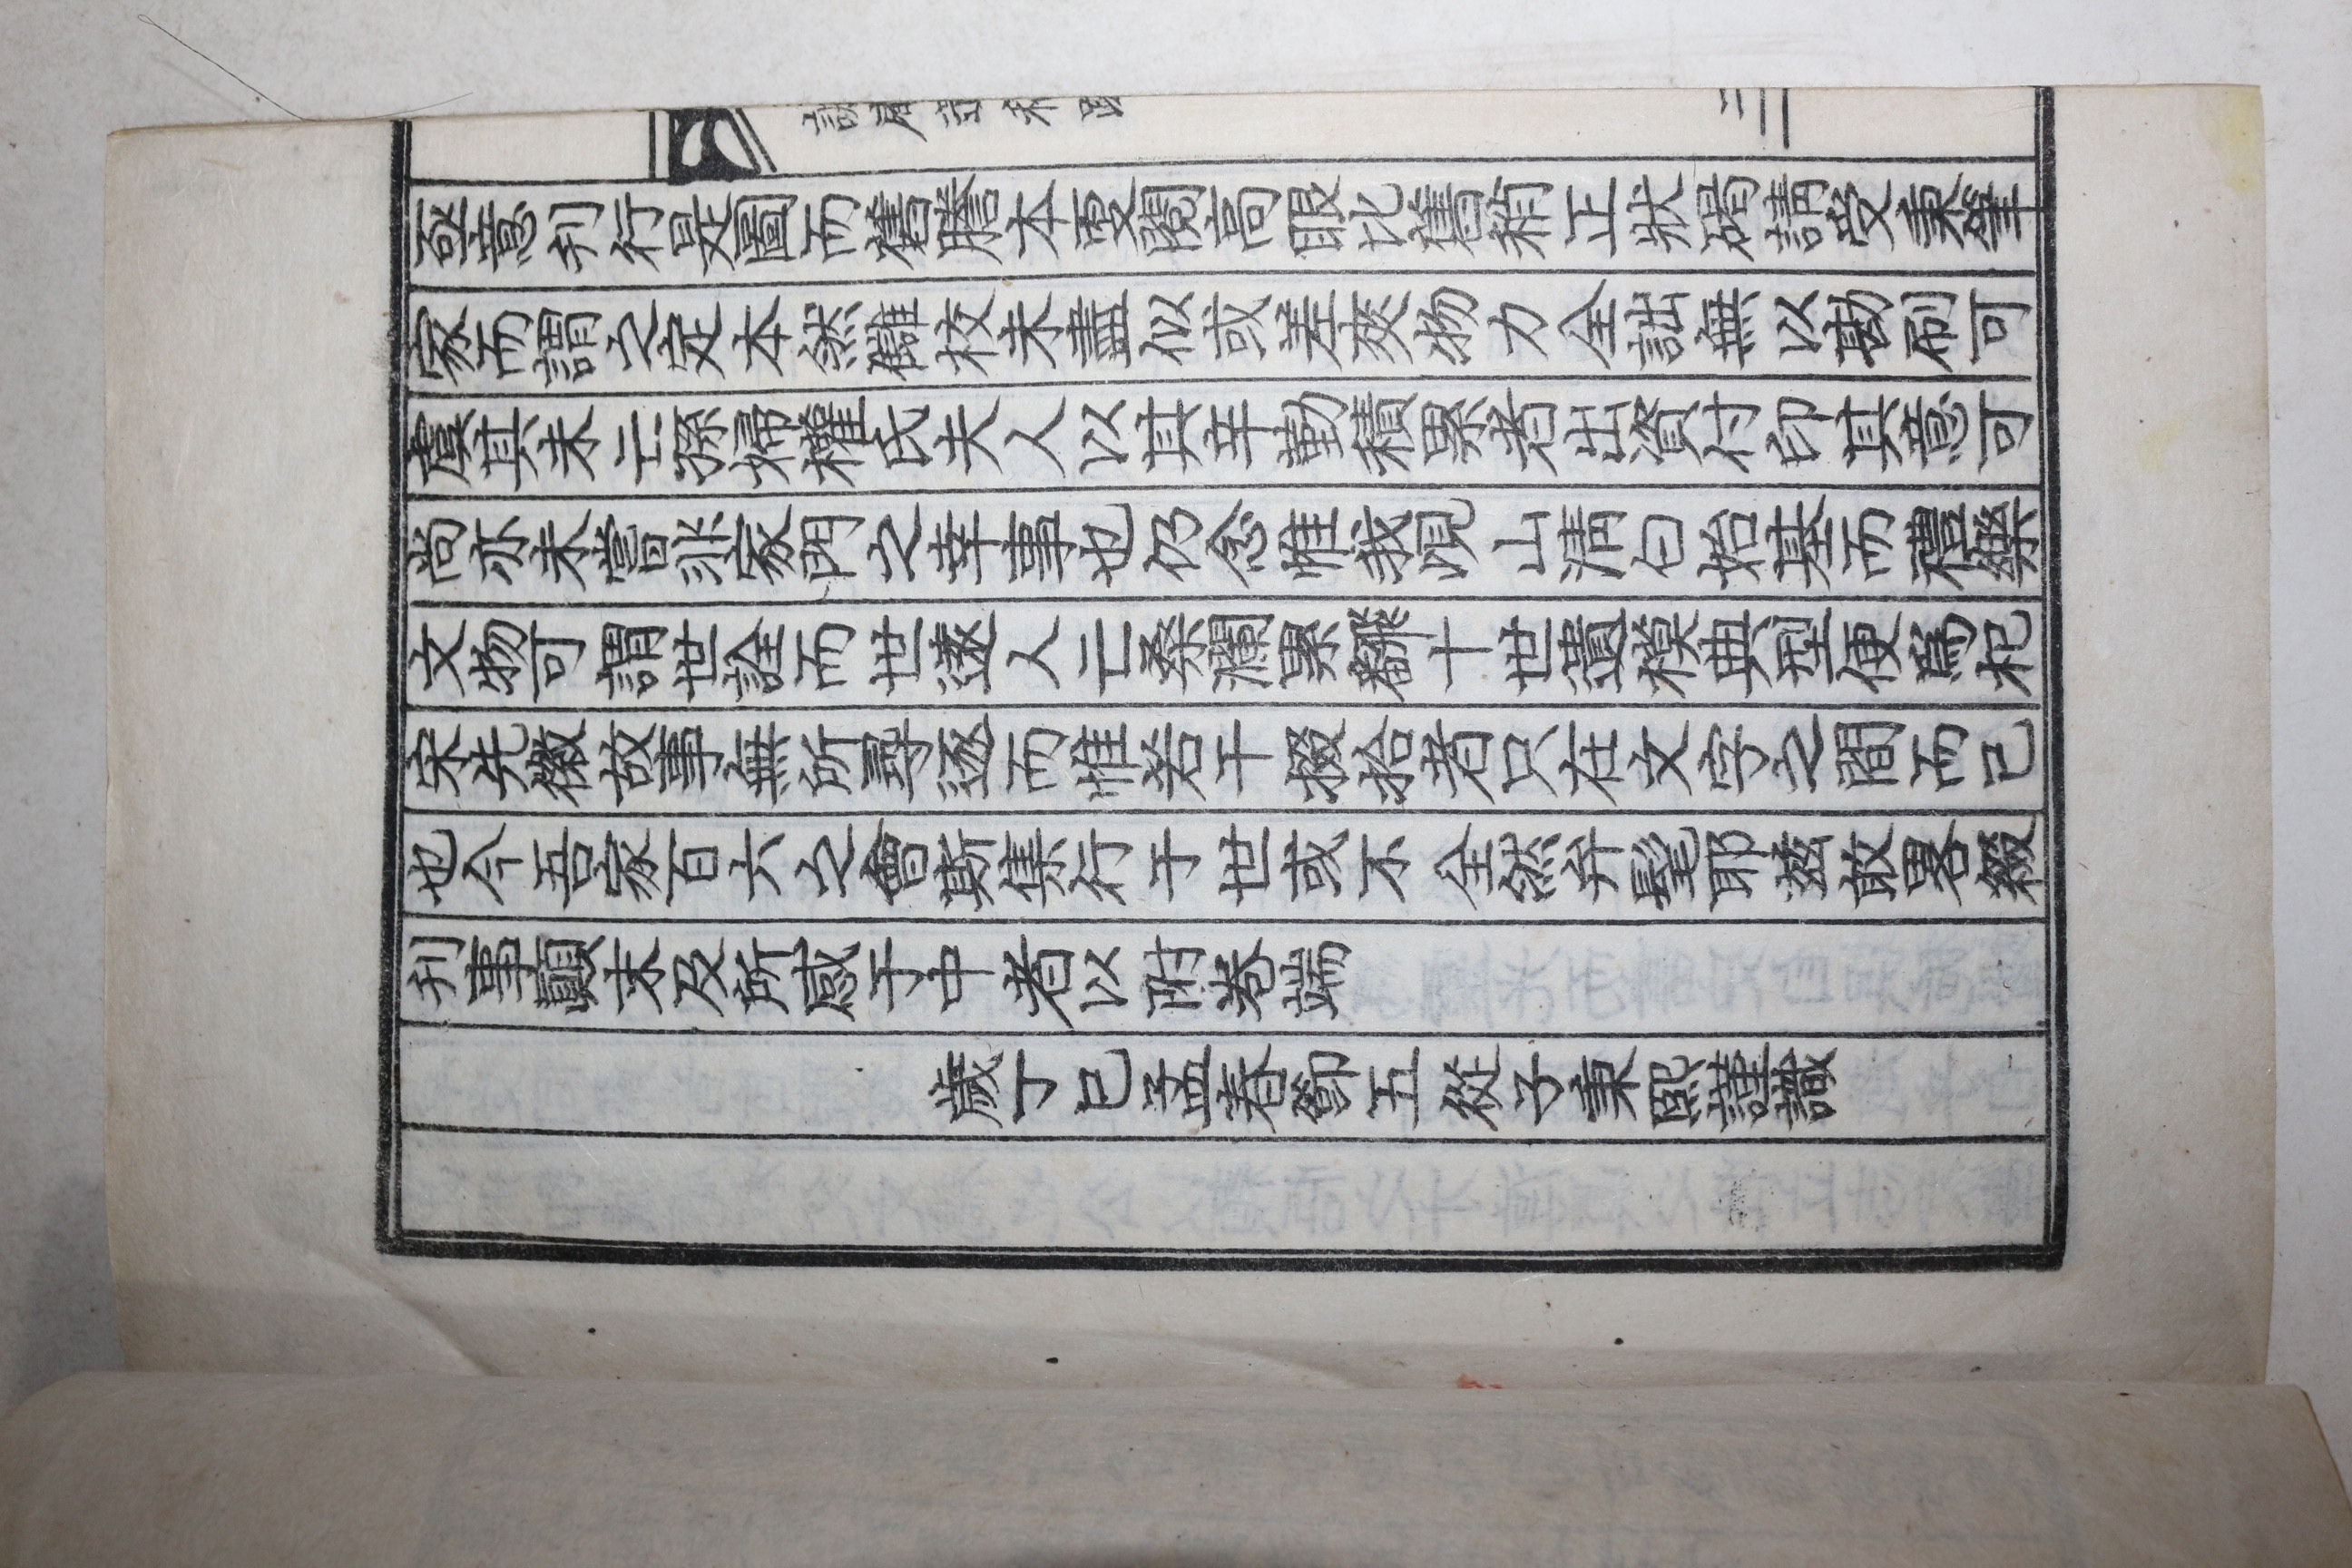 亟意刋行是圖而舊謄本更閱高眼比舊稍正狀碣請受秉筆
家而謂之定本然讎校未盡似或差爽物力全詘無以勘刷可
虞其未亡孫婦權氏夫人以其辛勤積累者出資付印其意可
尚亦未嘗非家門之幸事也仍念惟我峴山淸白始基而禮樂
文物可謂世詮而世遠人亡桑瀾累飜十世遺模典型便爲杞
宋先徽故事無所尋逐而惟若干掇拾者只在文字之間而已
也今吾家百六之會斯集行于世或不全然弁髦耶玆敢畧綴
刋事顚末及所感于中者以附卷端
歲丁巳孟春節五從子秉熙謹識
三